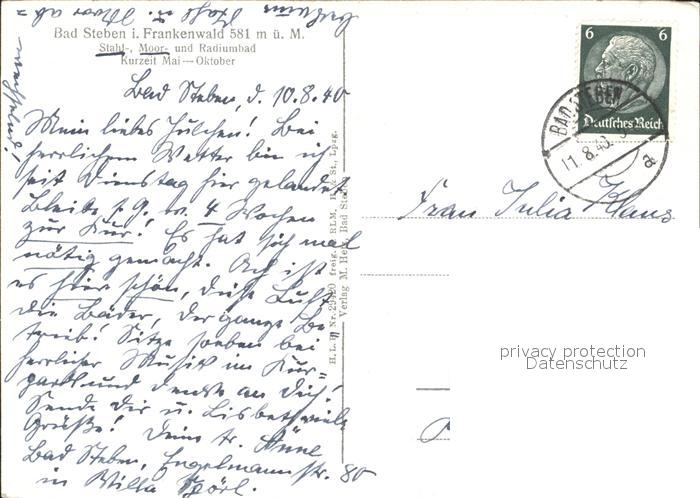 Bad Steben i. Frankenwald 581 m ü. M.
Stahl-, Moor- und Radiumbad
Kurzeit Mai—Oktober
Bad Steben, d. 10.8.40
Mein liebes Julchen! Bei
herrlichem Wetter bin ich
seit Dienstag hier gelandet
Bleibe 4 Wochen
zur Kur! Es hat sich mal
nötig gemacht. Ach ist
es hier schön, diese Luft
die Bäder, der ganze Be-
trieb! Sitze soeben bei
herrlicher Musik im Kur-
park und denke an Dich!
Sende Dir u. Lisbeth viele
Grüße! Deine tr. Änne
Bad Steben, Engelmannstr. 80
in Villa Spörl.
abwechselnd!
Stahl u. Moor ab=
Verlag M. Bad Steben
Nr. 29420 freig. RLM.
6 6
Deutsches Reich
BAD STEBEN
11.8.40
a
Frau Julia Klaus
privacy protection
Datenschutz